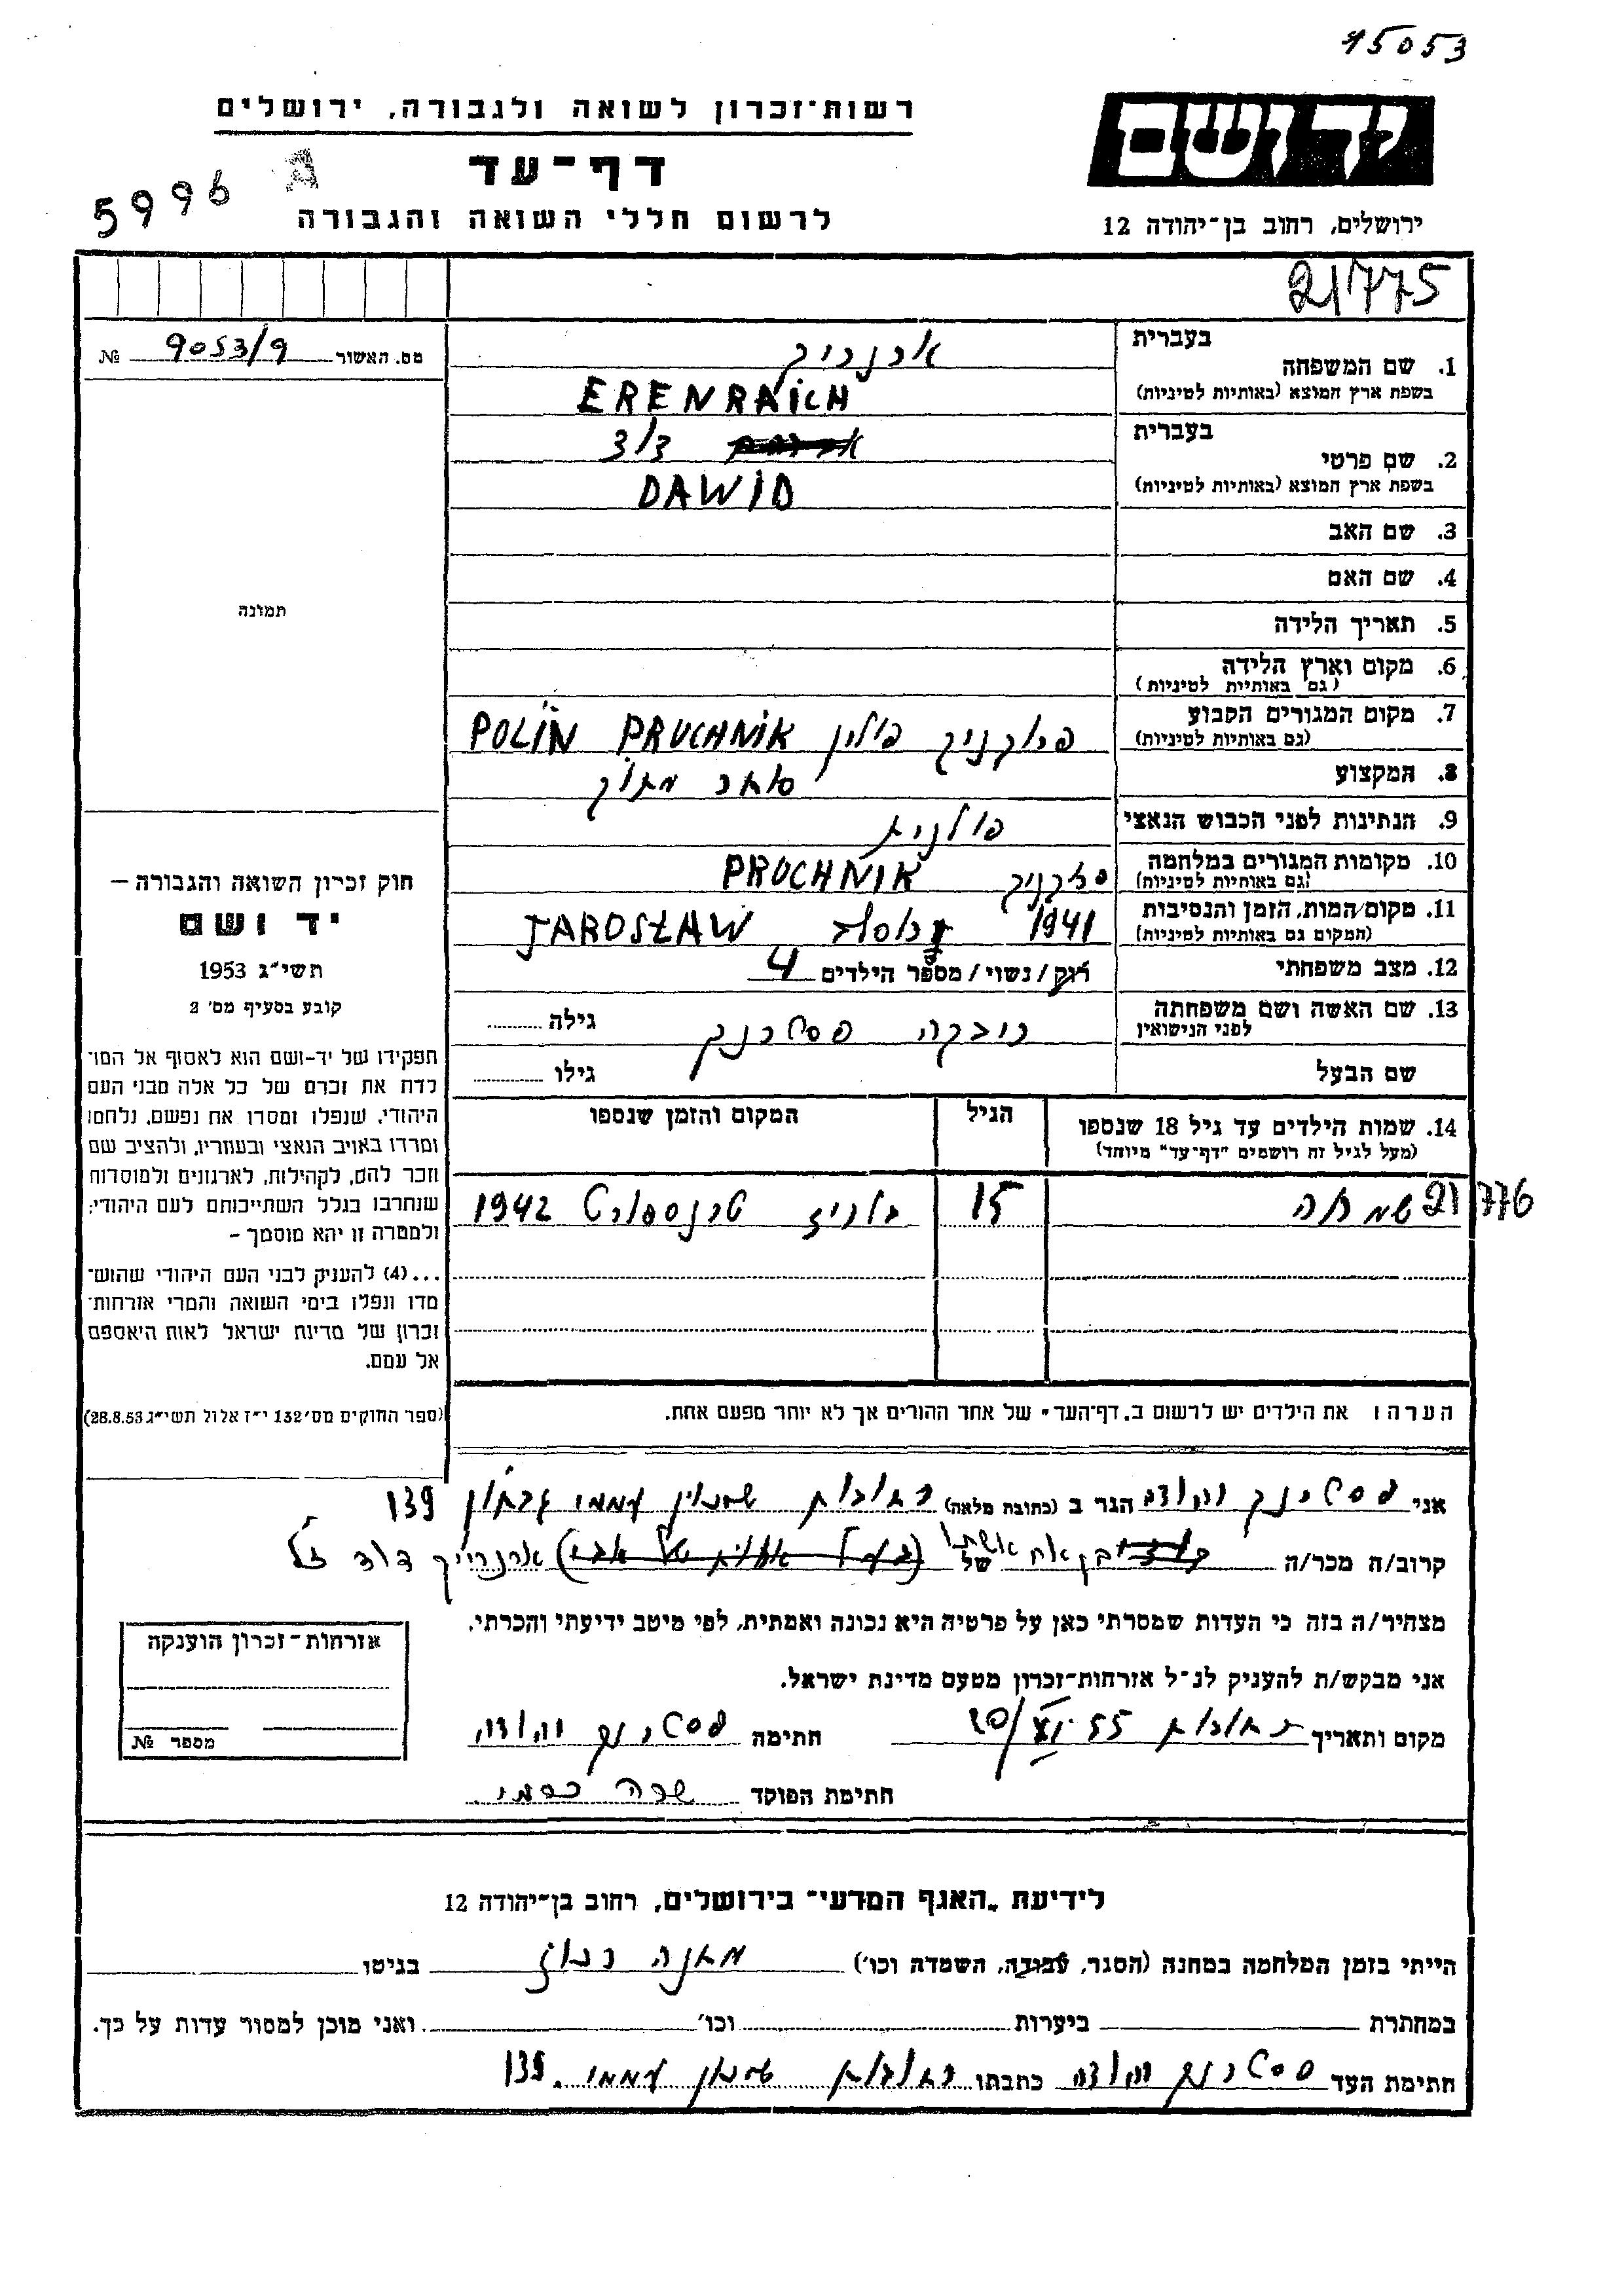 15053
רשות־זכרון לשואה ולגבורה, ירושלים
יד ושם
דף־עד
5996 A
לרשום חללי השואה והגבורה
ירושלים, רחוב בן־יהודה 12
21775
מס. האשור 9053/9 №
בעברית
1. שם המשפחה
ארנרייך
בשפת ארץ המוצא (באותיות לטיניות) ERENRAICH
בעברית
2. שם פרטי דוד
בשפת ארץ המוצא (באותיות לטיניות) DAWID
3. שם האב
4. שם האם
5. תאריך הלידה
6. מקום וארץ הלידה
(גם באותיות לטיניות)
7. מקום המגורים הקבוע פרוכניק פולין PRUCHNIK POLIN
(גם באותיות לטיניות)
8. המקצוע סוחר
9. הנתינות לפני הכבוש הנאצי פולנית
10. מקומות המגורים במלחמה PRUCHNIK
(גם באותיות לטיניות)
11. מקום המות, הזמן והנסיבות 1941 JAROSŁAW
(המקום גם באותיות לטיניות)
12. מצב משפחתי רוק/נשוי/מספר הילדים 4
13. שם האשה ושם משפחתה רבקה פסטרנק גילה
לפני הנישואין
שם הבעל גילו
תמונה
חוק זכרון השואה והגבורה –
יד ושם
תשי״ג 1953
קובע בסעיף מס׳ 2
תפקידו של יד-ושם הוא לאסוף אל המו־
לדת את זכרם של כל אלה מבני העם
היהודי, שנפלו ומסרו את נפשם, נלחמו
ומרדו באויב הנאצי ובעוזריו, ולהציב שם
וזכר להם, לקהילות, לארגונים ולמוסדות
שנחרבו בגלל השתייכותם לעם היהודי;
ולמטרה זו יהא מוסמך –
...(4) להעניק לבני העם היהודי שהוש־
מדו ונפלו בימי השואה והמרי אזרחות־
זכרון של מדינת ישראל לאות היאספם
אל עמם.
(ספר החוקים מס׳ 132 י״ז אלול תשי״ג 28.8.53)
14. שמות הילדים עד גיל 18 שנספו הגיל המקום והזמן שנספו
(מעל לגיל זה רושמים "דף־עד" מיוחד)
21776 שמחה 15 טרנספורט 1942
הערה: את הילדים יש לרשום ב„דף־העד" של אחד ההורים אך לא יותר מפעם אחת.
אני פסטרנק יהודה הגר ב (כתובת מלאה) רחובות שכון עממי 139
קרוב/ה מכר/ה בן אח אשתו של ארנרייך דוד ז״ל
מצהיר/ה בזה כי העדות שמסרתי כאן על פרטיה היא נכונה ואמתית, לפי מיטב ידיעתי והכרתי.
אני מבקש/ת להעניק לנ״ל אזרחות־זכרון מטעם מדינת ישראל.
מקום ותאריך רחובות 55 חתימה פסטרנק יהודה
חתימת הפוקד שרה
אזרחות־זכרון הוענקה
מספר №
לידיעת „האגף המדעי" בירושלים, רחוב בן־יהודה 12
הייתי בזמן המלחמה במחנה (הסגר, עבודה, השמדה וכו׳) בגיטו
במחתרת ביערות וכו׳ ואני מוכן למסור עדות על כך.
חתימת העד פסטרנק יהודה כתבתו רחובות שכון עממי 139